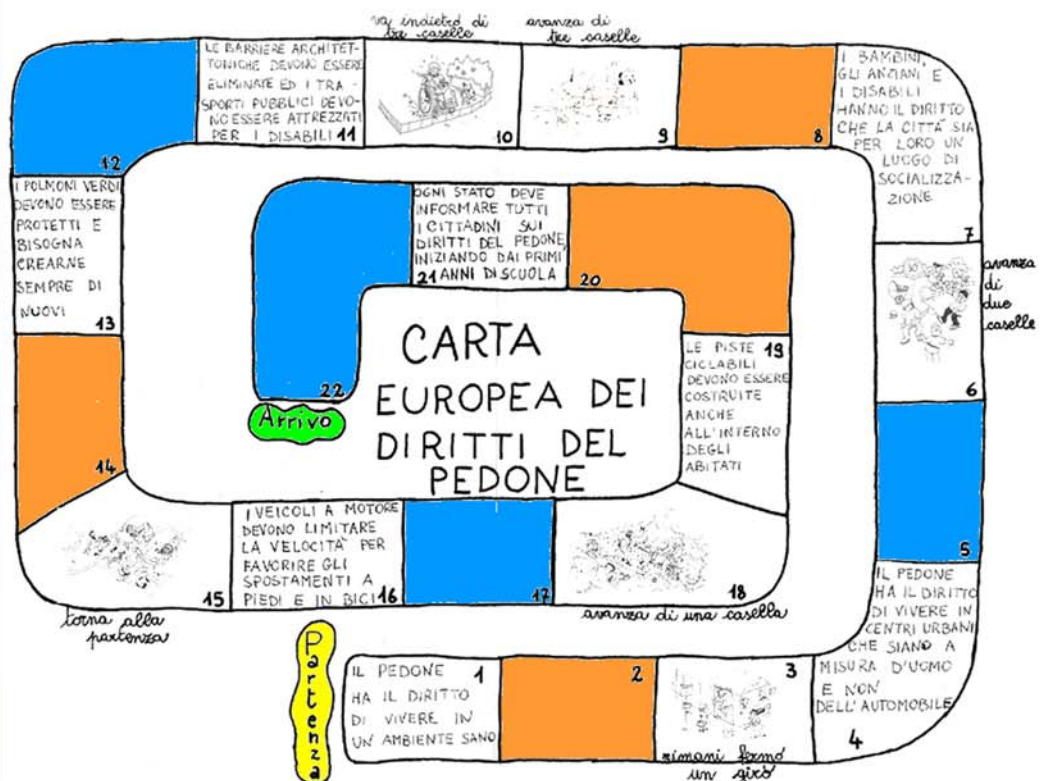 CARTA
EUROPEA DEI
DIRITTI DEL
PEDONE
Partenza
IL PEDONE 1
HA IL DIRITTO
DI VIVERE IN
UN'AMBIENTE SANO
2
3
rimani fermo
un giro
IL PEDONE
HA IL DIRITTO
DI VIVERE IN
CENTRI URBANI
CHE SIANO A
MISURA D'UOMO
E NON
DELL'AUTOMOBILE
4
5
6
avanza
di
due
caselle
I BAMBINI,
GLI ANZIANI E
I DISABILI
HANNO IL DIRITTO
CHE LA CITTÀ SIA
PER LORO UN
LUOGO DI
SOCIALIZZA-
ZIONE
7
8
avanza di
tre caselle
9
va indietro di
tre caselle
10
LE BARRIERE ARCHITET-
TONICHE DEVONO ESSERE
ELIMINATE ED I TRA-
SPORTI PUBBLICI DEVO-
NO ESSERE ATTREZZATI
PER I DISABILI 11
12
I POLMONI VERDI
DEVONO ESSERE
PROTETTI E
BISOGNA
CREARNE
SEMPRE DI
NUOVI
13
14
15
torna alla
partenza
I VEICOLI A MOTORE
DEVONO LIMITARE
LA VELOCITÀ PER
FAVORIRE GLI
SPOSTAMENTI A
PIEDI E IN BICI 16
17
18
avanza di una casella
LE PISTE 19
CICLABILI
DEVONO ESSERE
COSTRUITE
ANCHE
ALL'INTERNO
DEGLI
ABITATI
20
OGNI STATO DEVE
INFORMARE TUTTI
I CITTADINI SUI
DIRITTI DEL PEDONE,
INIZIANDO DAI PRIMI
21 ANNI DI SCUOLA
22
Arrivo